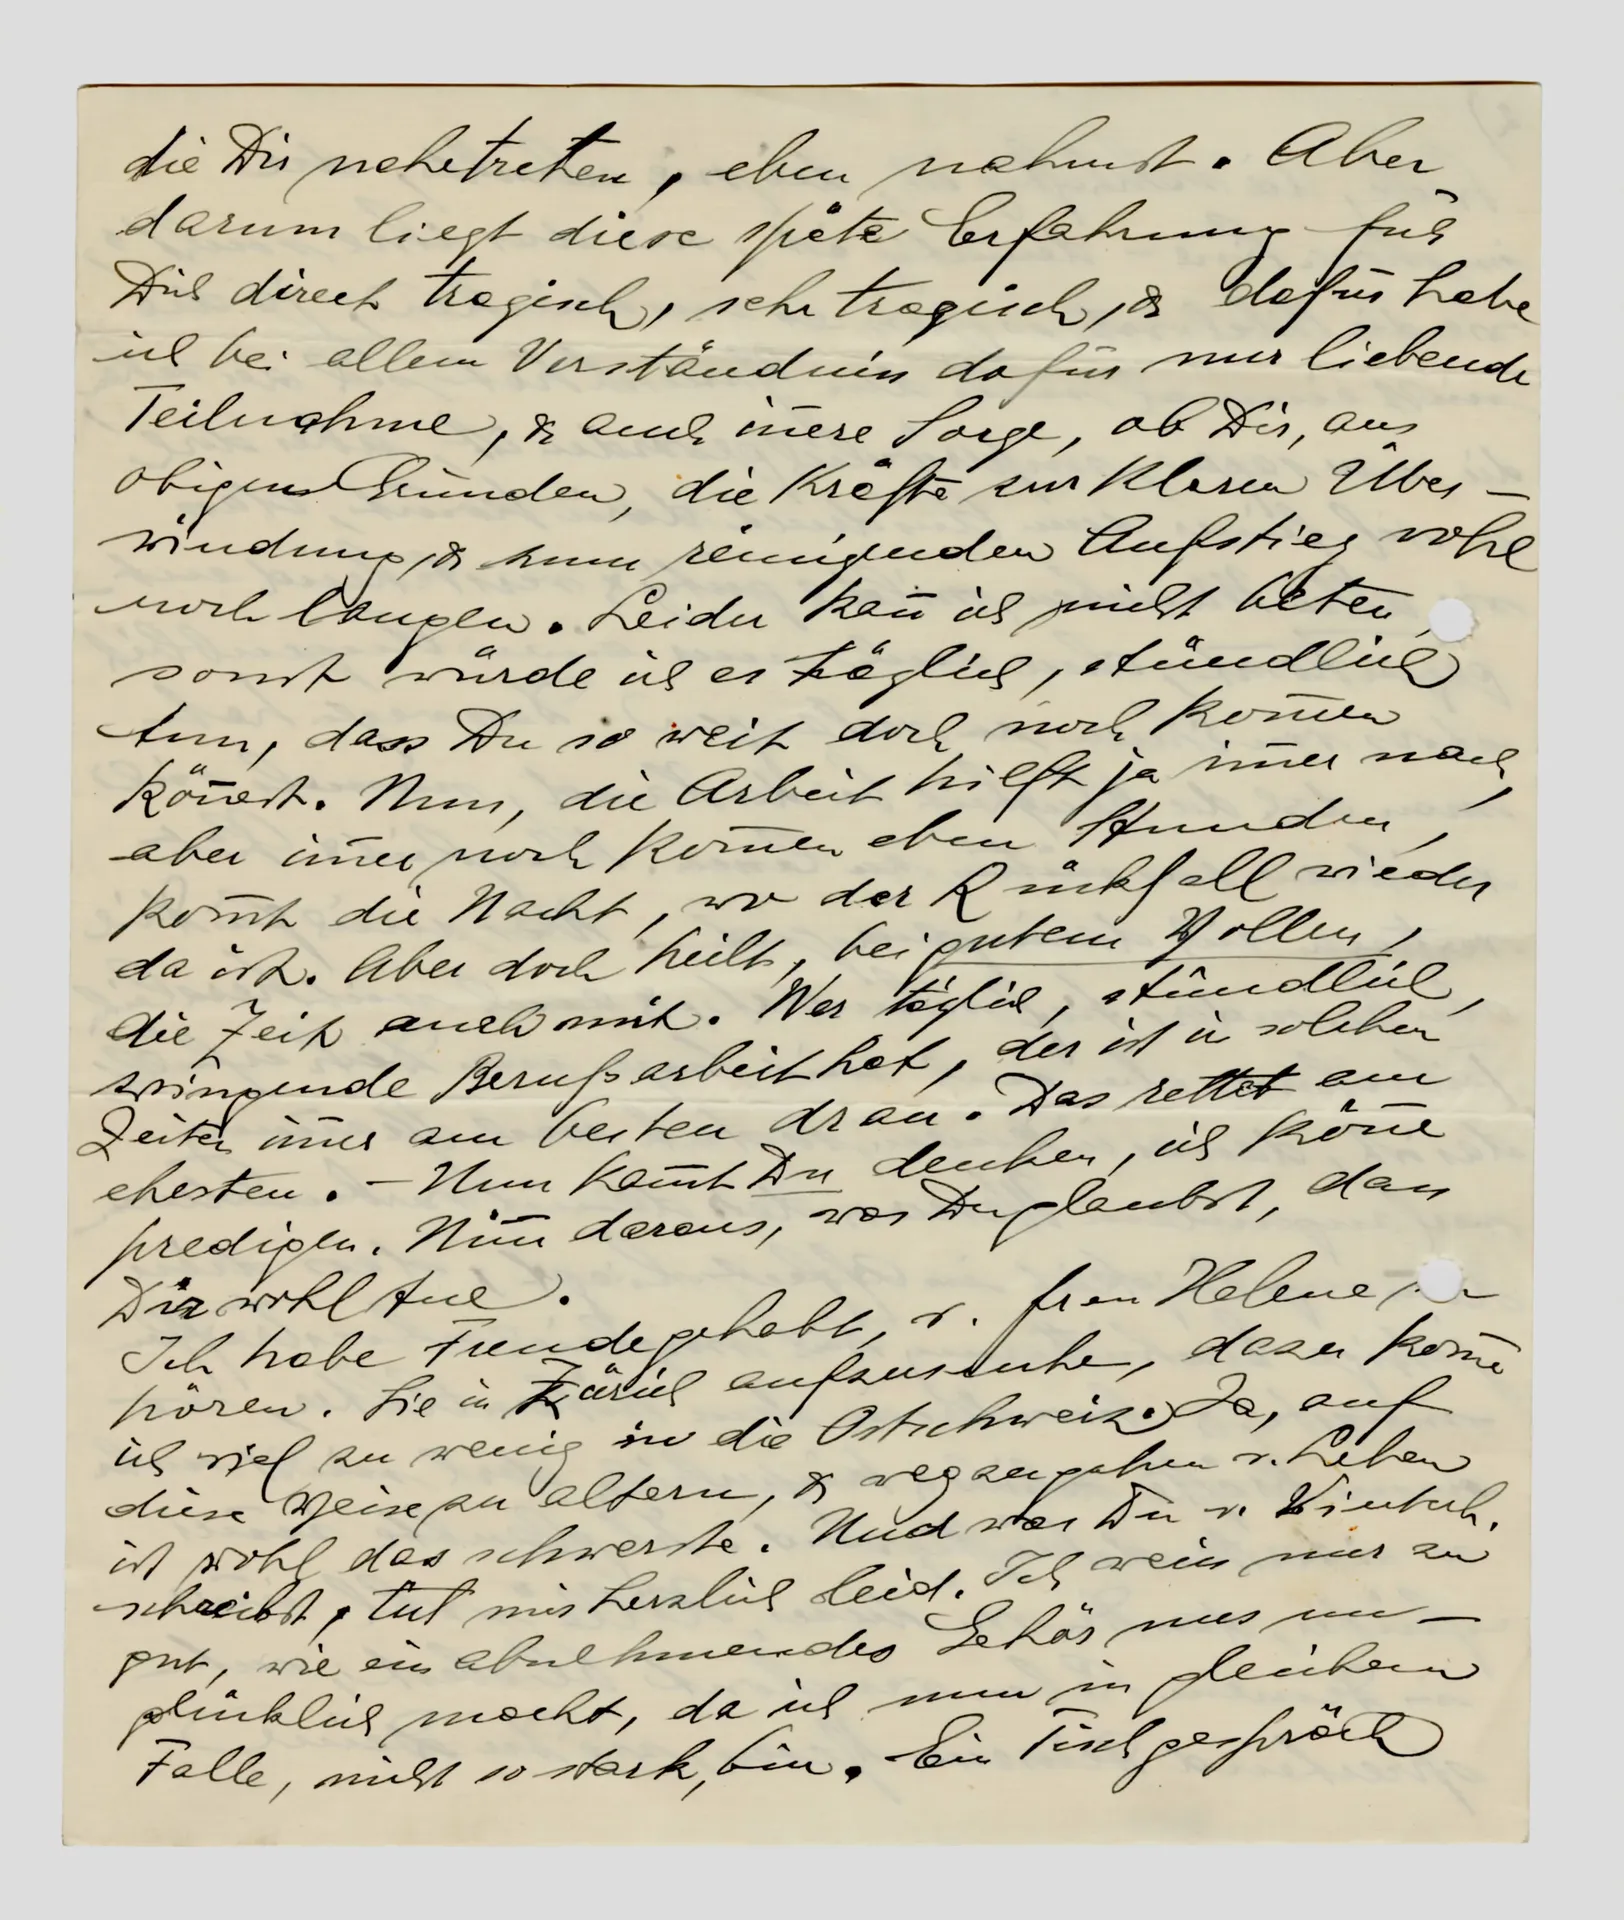 die Dir nahetreten, eben nahmst. Aber
darum liegt diese späte Erfahrung für
Dich direct tragisch, sehr tragisch, & dafür habe
ich bei allem Verständnis dafür nur liebende
Teilnahme, & auch iñere Sorge, ob Dir, aus
obigen Gründen, die Kräfte zur klaren Über-
windung & zum reinigenden Aufstieg wohl
noch langen. Leider kañ ich nicht beten
sonst würde ich es täglich, stündlich
tun, dass Du so weit doch noch kom̄en
köñest. Nun, die Arbeit hilft ja im̄er nach,
aber im̄er noch kom̄en eben Stunden,
kom̄t die Nacht, wo der Rückfall wieder
da ist. Aber doch heilt, bei gutem Wollen,
die Zeit auch mit. Wer täglich, stündlich,
zwingende Berufsarbeit hat, der ist in solchen
Zeiten im̄er am besten dran. Das rettet am
ehesten. – Nun kañst Du denken, ich köñe
predigen. Nim̄ daraus, was Du glaubst, dass
Dir wohl tue.
Ich habe Freude gehabt, v. frau Helene zu
hören. Sie in Zürich aufzusuchen, dazu kom̄e
ich viel zu wenig in die Ostschweiz. Ja, auf
diese Weise zu altern, & wegzugehen v. Leben
ist wohl das schwerste. Und was Du v. Winterth.
schreibst, tut mir herzlich leid. Ich weiss nur zu
gut, wie ein abnehmendes Gehör uns un-
glücklich macht, da ich nun in gleichem
Falle, nicht so stark, bin. Ein Tischgespräch